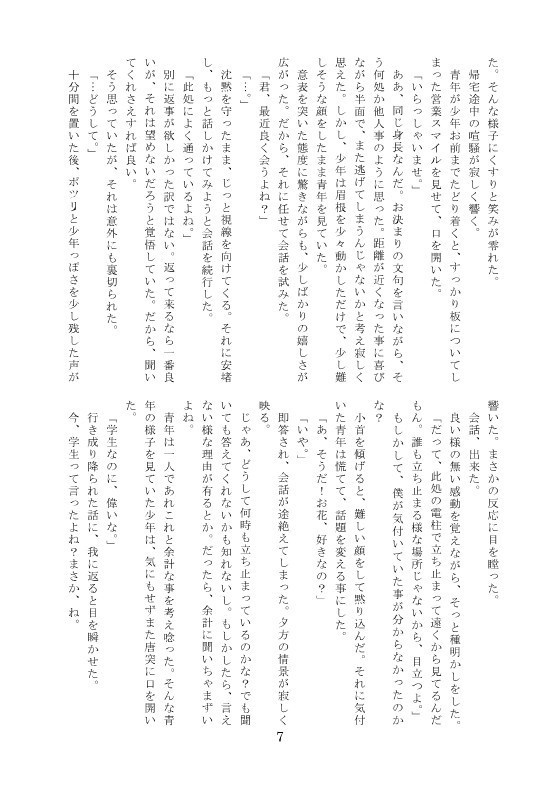 た。そんな様子にくすりと笑みが零れた。
帰宅途中の喧騒が寂しく響く。
青年が少年お前までたどり着くと、すっかり板についてし
まった営業スマイルを見せて、口を開いた。
「いらっしゃいませ。」
ああ、同じ身長なんだ。お決まりの文句を言いながら、そ
う何処か他人事のように思った。距離が近くなった事に喜び
ながら半面で、また逃げてしまうんじゃないかと考え寂しく
思えた。しかし、少年は眉根を少々動かしただけで、少し難
しそうな顔をしたまま青年を見ていた。
意表を突いた態度に驚きながらも、少しばかりの嬉しさが
広がった。だから、それに任せて会話を試みた。
「君、最近良く会うよね？」
「…。」
沈黙を守ったまま、じっと視線を向けてくる。それに安堵
し、もっと話しかけてみようと会話を続行した。
「此処によく通っているよね。」
別に返事が欲しかった訳ではない。返って来るなら一番良
いが、それは望めないだろうと覚悟していた。だから、聞い
てくれさえすれば良い。
そう思っていたが、それは意外にも裏切られた。
「…どうして。」
十分間を置いた後、ポツリと少年っぽさを少し残した声が
響いた。まさかの反応に目を瞠った。
会話、出来た。
良い様の無い感動を覚えながら、そっと種明かしをした。
「だって、此処の電柱で立ち止まって遠くから見てるんだ
もん。誰も立ち止まる様な場所じゃないから、目立つよ。」
もしかして、僕が気付いていた事が分からなかったのか
な？
小首を傾げると、難しい顔をして黙り込んだ。それに気付
いた青年は慌てて、話題を変える事にした。
「あ、そうだ！お花、好きなの？」
「いや。」
即答され、会話が途絶えてしまった。夕方の情景が寂しく
映る。
じゃあ、どうして何時も立ち止まっているのかな？でも聞
いても答えてくれないかも知れないし。もしかしたら、言え
ない様な理由が有るとか。だったら、余計に聞いちゃまずい
よね。
青年は一人であれこれと余計な事を考え唸った。そんな青
年の様子を見ていた少年は、気にもせずまた唐突に口を開い
た。
「学生なのに、偉いな。」
行き成り降られた話に、我に返ると目を瞬かせた。
今、学生って言ったよね？まさか、ね。
7